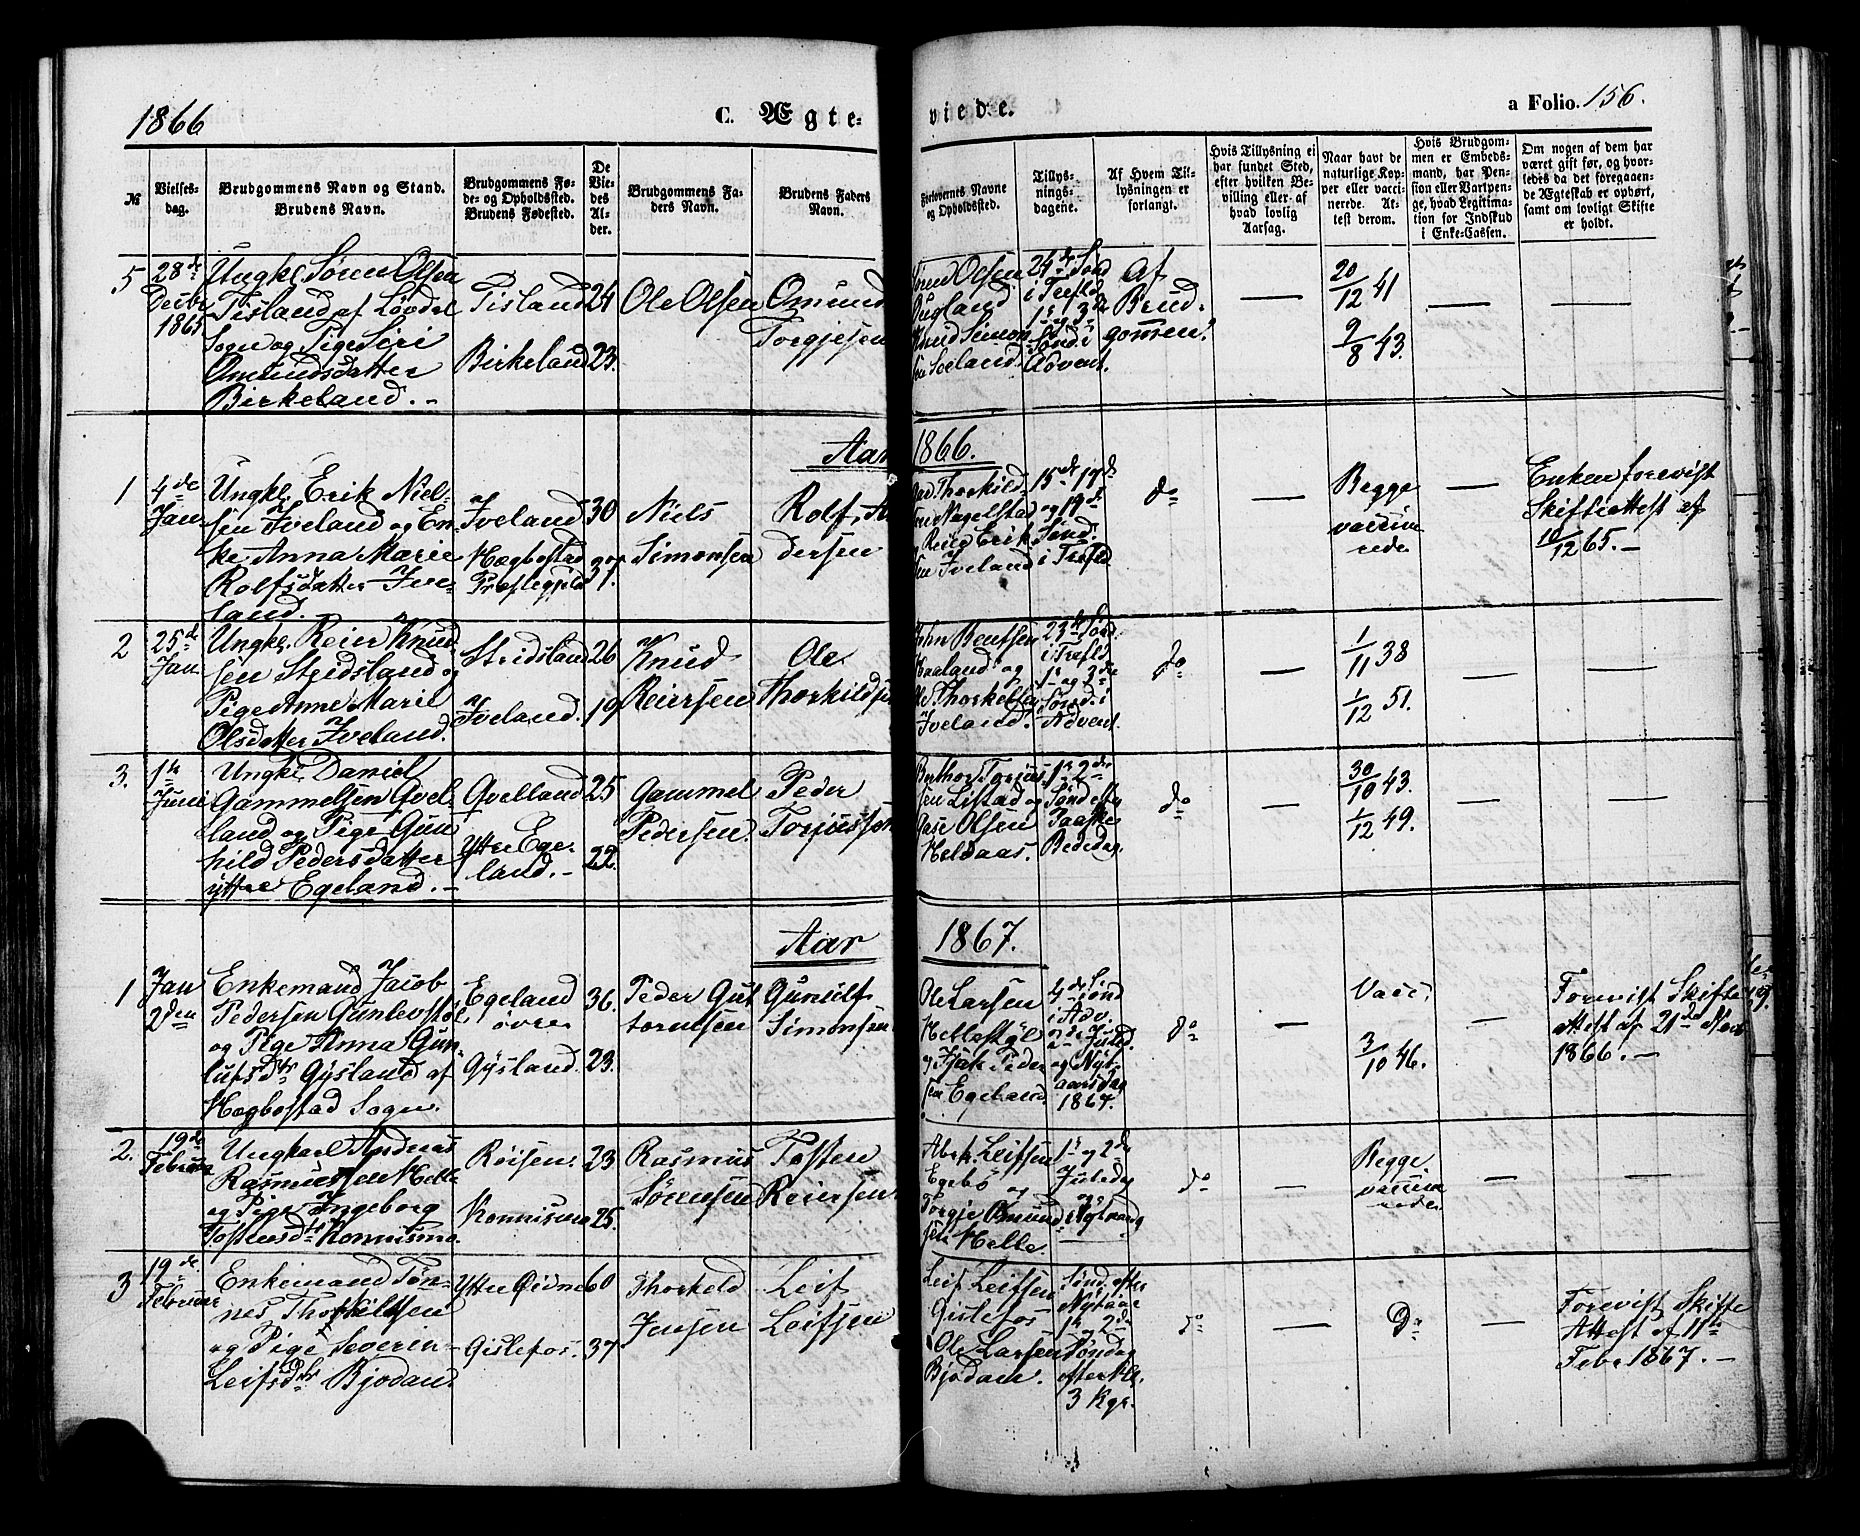 1866
C. Ægte-
viede.
a Folio. 156.
№
Vielses-
dag.
Brudgommens Navn og Stand.
Brudens Navn.
Brudgommens Fø-
de- og Opholdssted.
Brudens Fødested.
De
Vie-
des
Al-
der.
Brudgommens Fa-
ders Navn.
Brudens Faders
Navn.
Forlovernes Navne
og Opholdssted.
Tillys-
nings-
dagene.
Af Hvem Til-
lysningen er
forlangt.
Hvis Tillysning ei
har fundet Sted,
efter hvilken Be-
villing eller af
hvad lovlig
Aarsag.
Naar havt de
naturlige Kop-
per eller vacci-
nerede. At-
test derom.
Hvis Brudgom-
men er Embeds-
mand, har Pen-
sion eller Vartpen-
ge, hvad Legitima-
tion for Indskud
i Enke-Cassen.
Om nogen af dem har
været gift før, og hvor-
ledes da det foregaaen-
de Ægteskab er ophørt,
samt om lovligt Skifte
er holdt.
5
28de
Decbr
1865
Ungkl. Søren Olsen
Tisland af Løvdal
Sogn og Pige Siri
Omundsdatter
Birkeland. -
Tisland
Birkeland
24
23.
Ole Olsen
Omund
Torgjesen
Olsen
Knud Simon-
sen Seeland.
24de Sønd
i Trefld.
1ste og 3de
Sønd. i
Advent.
Af
Brud-
gommen.
20/12 41
9/8 43.
Aar 1866.
1
4de
Jan
Ungkl. Erik Niel-
sen Iveland og En-
ke Anna Marie
Rolfsdatter Ive-
land.
Iveland
Hægbostad
Præstegjeld
30
37.
Niels
Simonsen
Rolf
dersen
Thorkild-
sen Nagelstad
Erik
sen Iveland
15de 17de
og 19de
Sønd.
i Trefld
do
Begge
vaccine
rede
Enken forevist
Skifteattest af
10/12 65. -
2
25de
Jan
Ungkl. Reier Knud
sen Stridsland og
Pige Anne Marie
Olsdatter Iveland.
Stridsland
Iveland.
26
19
Knud
Reiersen
Ole
Thorkildsen
John Bentsen
Haaland og
Ole Thorkelsen
Iveland.
23de Sønd.
i Trefld
1ste og 2den
Sønd. i
Advent.
do
1/11 38
1/12 51.
3.
1ste
Juni
Ungkl. Daniel
Gammelsen Qvel-
land og Pige Gun-
hild Pedersdatter
yttre Egeland. -
Qvelland
Yttre Ege-
land. -
25
22.
Gammel
Pedersen.
Peder
Torjussen
Berthor Torjus-
sen Listad og
Aase Olsen
Heldaas.
1ste 2den
Sønd efter
Paaske
Bededag.
do
30/10 43.
1/12 49.
Aar 1867.
1
Jan
2den
Enkemand Jacob
Pedersen Gunlevstøl
og Pige Anna Gun-
lufsdtr Gysland af
Hægbostad Sogn.
Egeland
øvre
Gysland.
36.
23.
Peder Gut
tormsen
Gunulf
Simonsen
Ole Larsen
Hellestøl
og Isak Peder
sen Egeland
4de Sønd
i Adv.
2den Juled.
og Nyt-
aarsdag
1867.
do
Vacc.
3/10 46.
Forevist Skifte
attest af 21de Nov
1866. -
2.
19de
Februar
Ungkarl Andreas
Rasmussen Helle
og Pige Ingeborg
Tostensdtr Konnismo.
Røisen.
Konnismo
23
25.
Rasmus
Sørensen
Tosten
Reiersen
Abrh. Leifsen
Egebø og
Torgje Omund-
sen Helle
1ste og 2den
Juledag
Nytaarsdag
do
Begge
vaccine
rede
3
19de
Februar
Enkemand Tøn-
nes Thorkildsen
og Pige Severin-
Leifsdtr Bjødam.
Yttre Øidne
Gislefos.
60
37
Thorkeld
Jensen
Leif
Leifsen
Leif Leifsen
Gislefos
Ole Larsen
Bjødam.
Sønd. efter
Nytaar
1ste og 2den
Søndag
efter Hlg.
3 Kgr.
do
Do
Forevist Skifte
Attest af 11te
Febr 1867. -